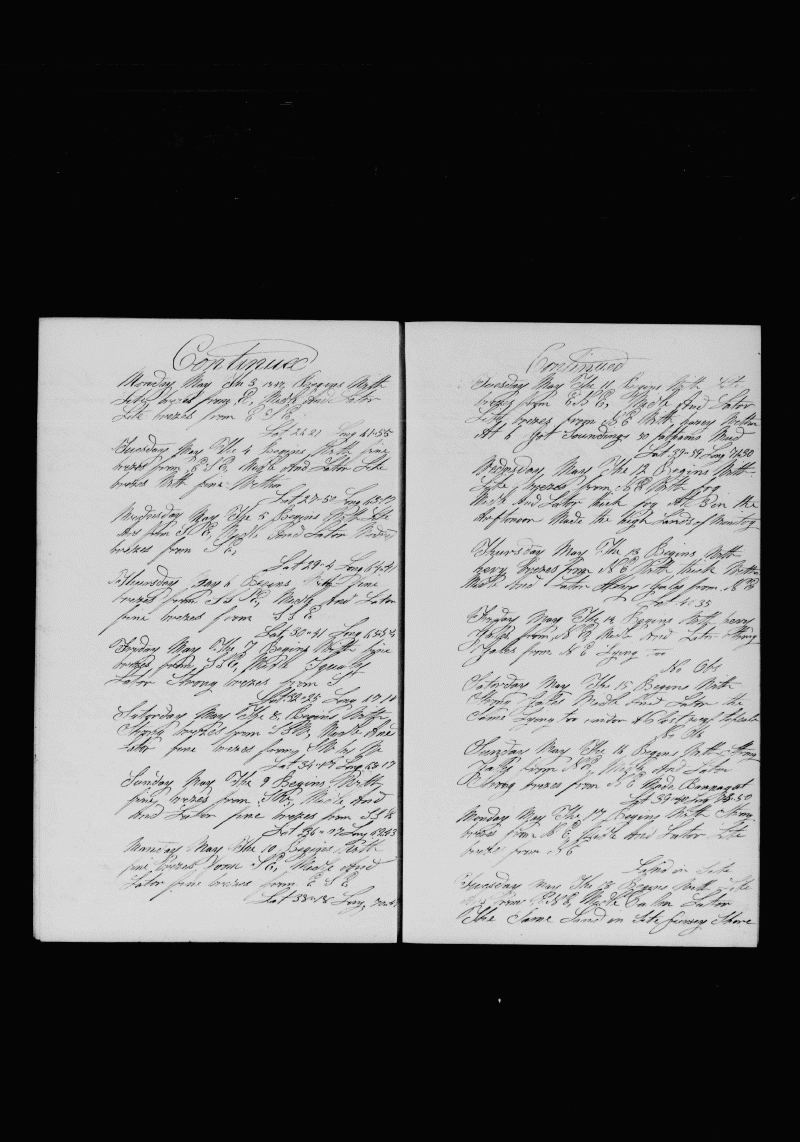 Continued
Monday May the 3 Begins With
Lite brezes from E, Midle And Lator
Lite brezes from E S E
Lat 24 21 Long 61-55
Tuesday May The 4 Begins With fine
brezes from E S E Midle And Lator Lite
brezes With fine Wether
Lat 27-57 Long
Wednesday May The 5 Begins With Lite
Airs from S E, Midle And Lator
brezes from S E,
Lat 29-4 Long
Thursday May 6 Begins With fine
brezes from S S E, Midle And Lator
fine brezes from S S E
Lat 30-41 Long
Friday May The 7 Begins With fine
brezes from S S E, Midle Squaly
Lator Strong brezes from S
Lat 32-25 Long
Saturday May The 8 Begins With
Strong brezes from S S W, Midle And
Lator fine brezes from
Lat 34-17 Long 68-17
Sunday May The 9 Begins With
fine brezes from Midle And
And Lator fine brezes from
Lat 36-17 Long
Monday May The 10 Begins With
fine brezes from S E, Midle And
Lator fine brezes from E S E
Lat 38-18 Long 70-
Continued
Tuesday May The 11 Begins With Lite
brezes from E S E, Midle And Lator
Lite brezes from N E With Wether
At 6 Got Soundings 30 fathoms Mud
Lat 39-39 Long
Wednesday May The 12 Begins With
Lite brezes from N E With fog
Midle And Lator thick fog At in the
Afternoon Made the high Lands of
Thursday May The 13 Begins With
brezes from N E With thick Wether
Midle And Lator Gales from N E
Lat 40 35
Friday May The 14 Begins With hevy
Gales from N E, Midle And Lator Strong
Gales from N E Lying too
No Obs
Saturday May The 15 Begins With
Strong Gales Midle And Lator the
Same Lying too under
No Obs
Sunday May The 16 Begins With Strong
Gales from N E, Midle And Lator
Strong brezes from N E Made Barnagat
Lat 39-40 Long 73-50
Monday May The 17 Begins With Strong
brezes from N E, Midle And Lator Lite
brezes from N E
Land in Site
Tuesday May The 18 Begins With Lite
Airs from Midle Calm Lator
The Same Land in Site Jersey Shore